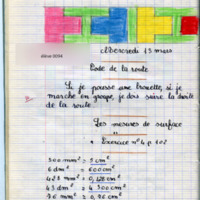 élève 0034
Mercredi 13 mars
Code de la route
Si je pousse une brouette, si je
marche en groupe, je dois suivre la droite
de la route.
Les mesures de surface
Exercice n°4 p. 102
300 mm² = 3 cm²
6 dm² = 600 cm²
43 dm² = 4 300 cm²